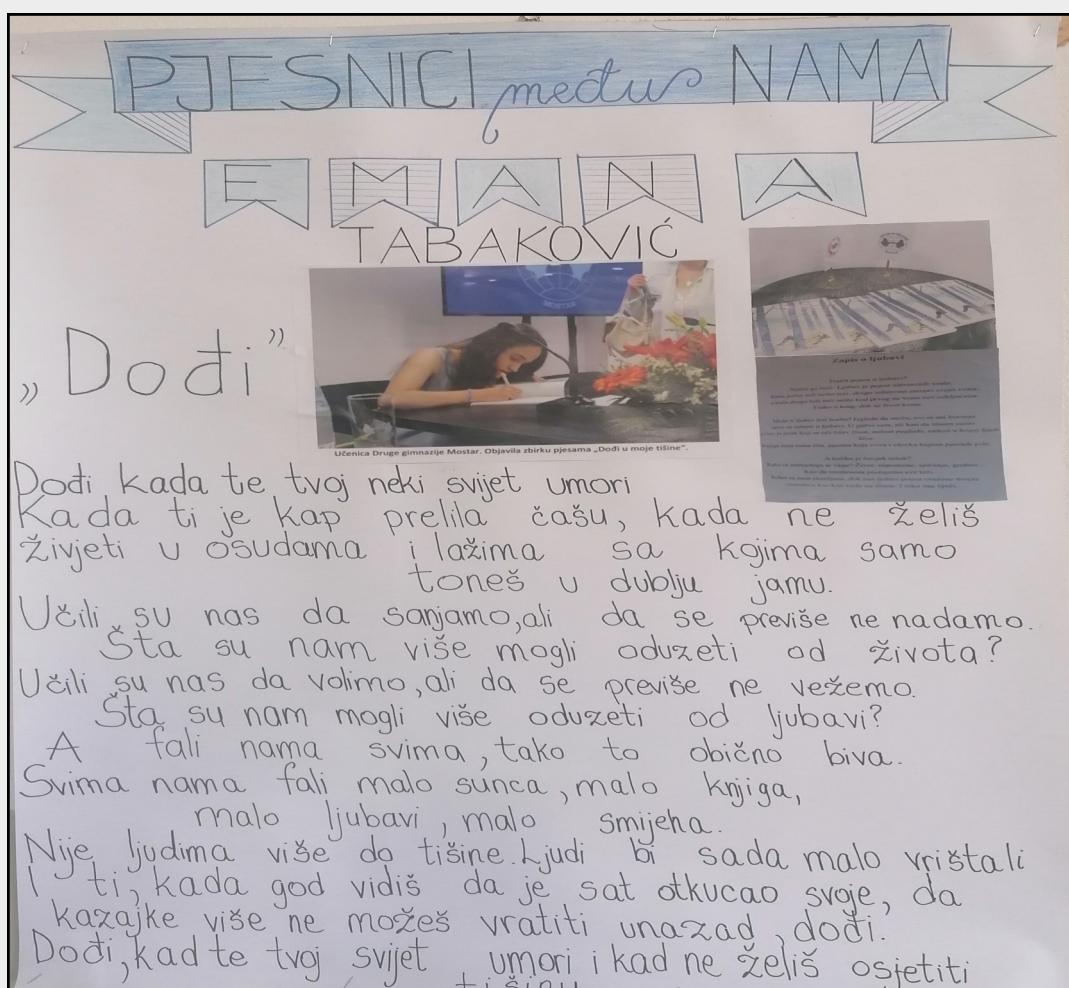 PJESNICI među NAMA
EMANA
TABAKOVIĆ
„Dođi”
MOSTAR
Učenica Druge gimnazije Mostar. Objavila zbirku pjesama „Dođi u moje tišine”.
Zapis o ljubavi
Dođi kada te tvoj neki svijet umori
Kada ti je kap prelila čašu, kada ne želiš
živjeti u osudama i lažima sa kojima samo
toneš u dublju jamu.
Učili su nas da sanjamo, ali da se previše ne nadamo.
Šta su nam više mogli oduzeti od života?
Učili su nas da volimo, ali da se previše ne vežemo.
Šta su nam mogli više oduzeti od ljubavi?
A fali nama svima, tako to obično biva.
Svima nama fali malo sunca, malo knjiga,
malo ljubavi, malo smijeha.
Nije ljudima više do tišine. Ljudi bi sada malo vrištali
I ti, kada god vidiš da je sat otkucao svoje, da
kazajke više ne možeš vratiti unazad, dođi.
Dođi, kad te tvoj svijet umori i kad ne želiš osjetiti
tišinu